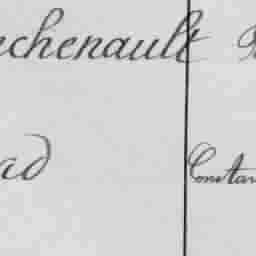 chenault
ad Constan